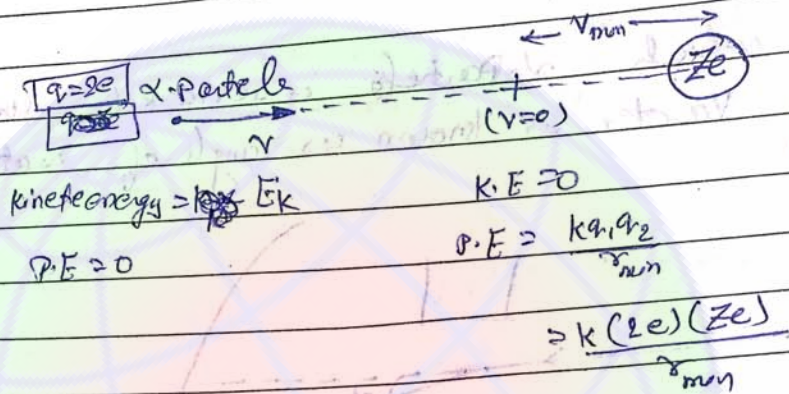 ← r min →
q=2e α-Partcle Ze
V (V=0)
Kineteenergy = EK K.E =0
P.E =0 P.E = kq1q2 / rmin
= k (2e) (Ze) / rmin